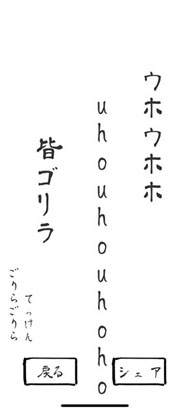 ウホウホホ
uhouhouhouhoho
皆ゴリラ
てっけん
ごりらごりら
戻る
シェア